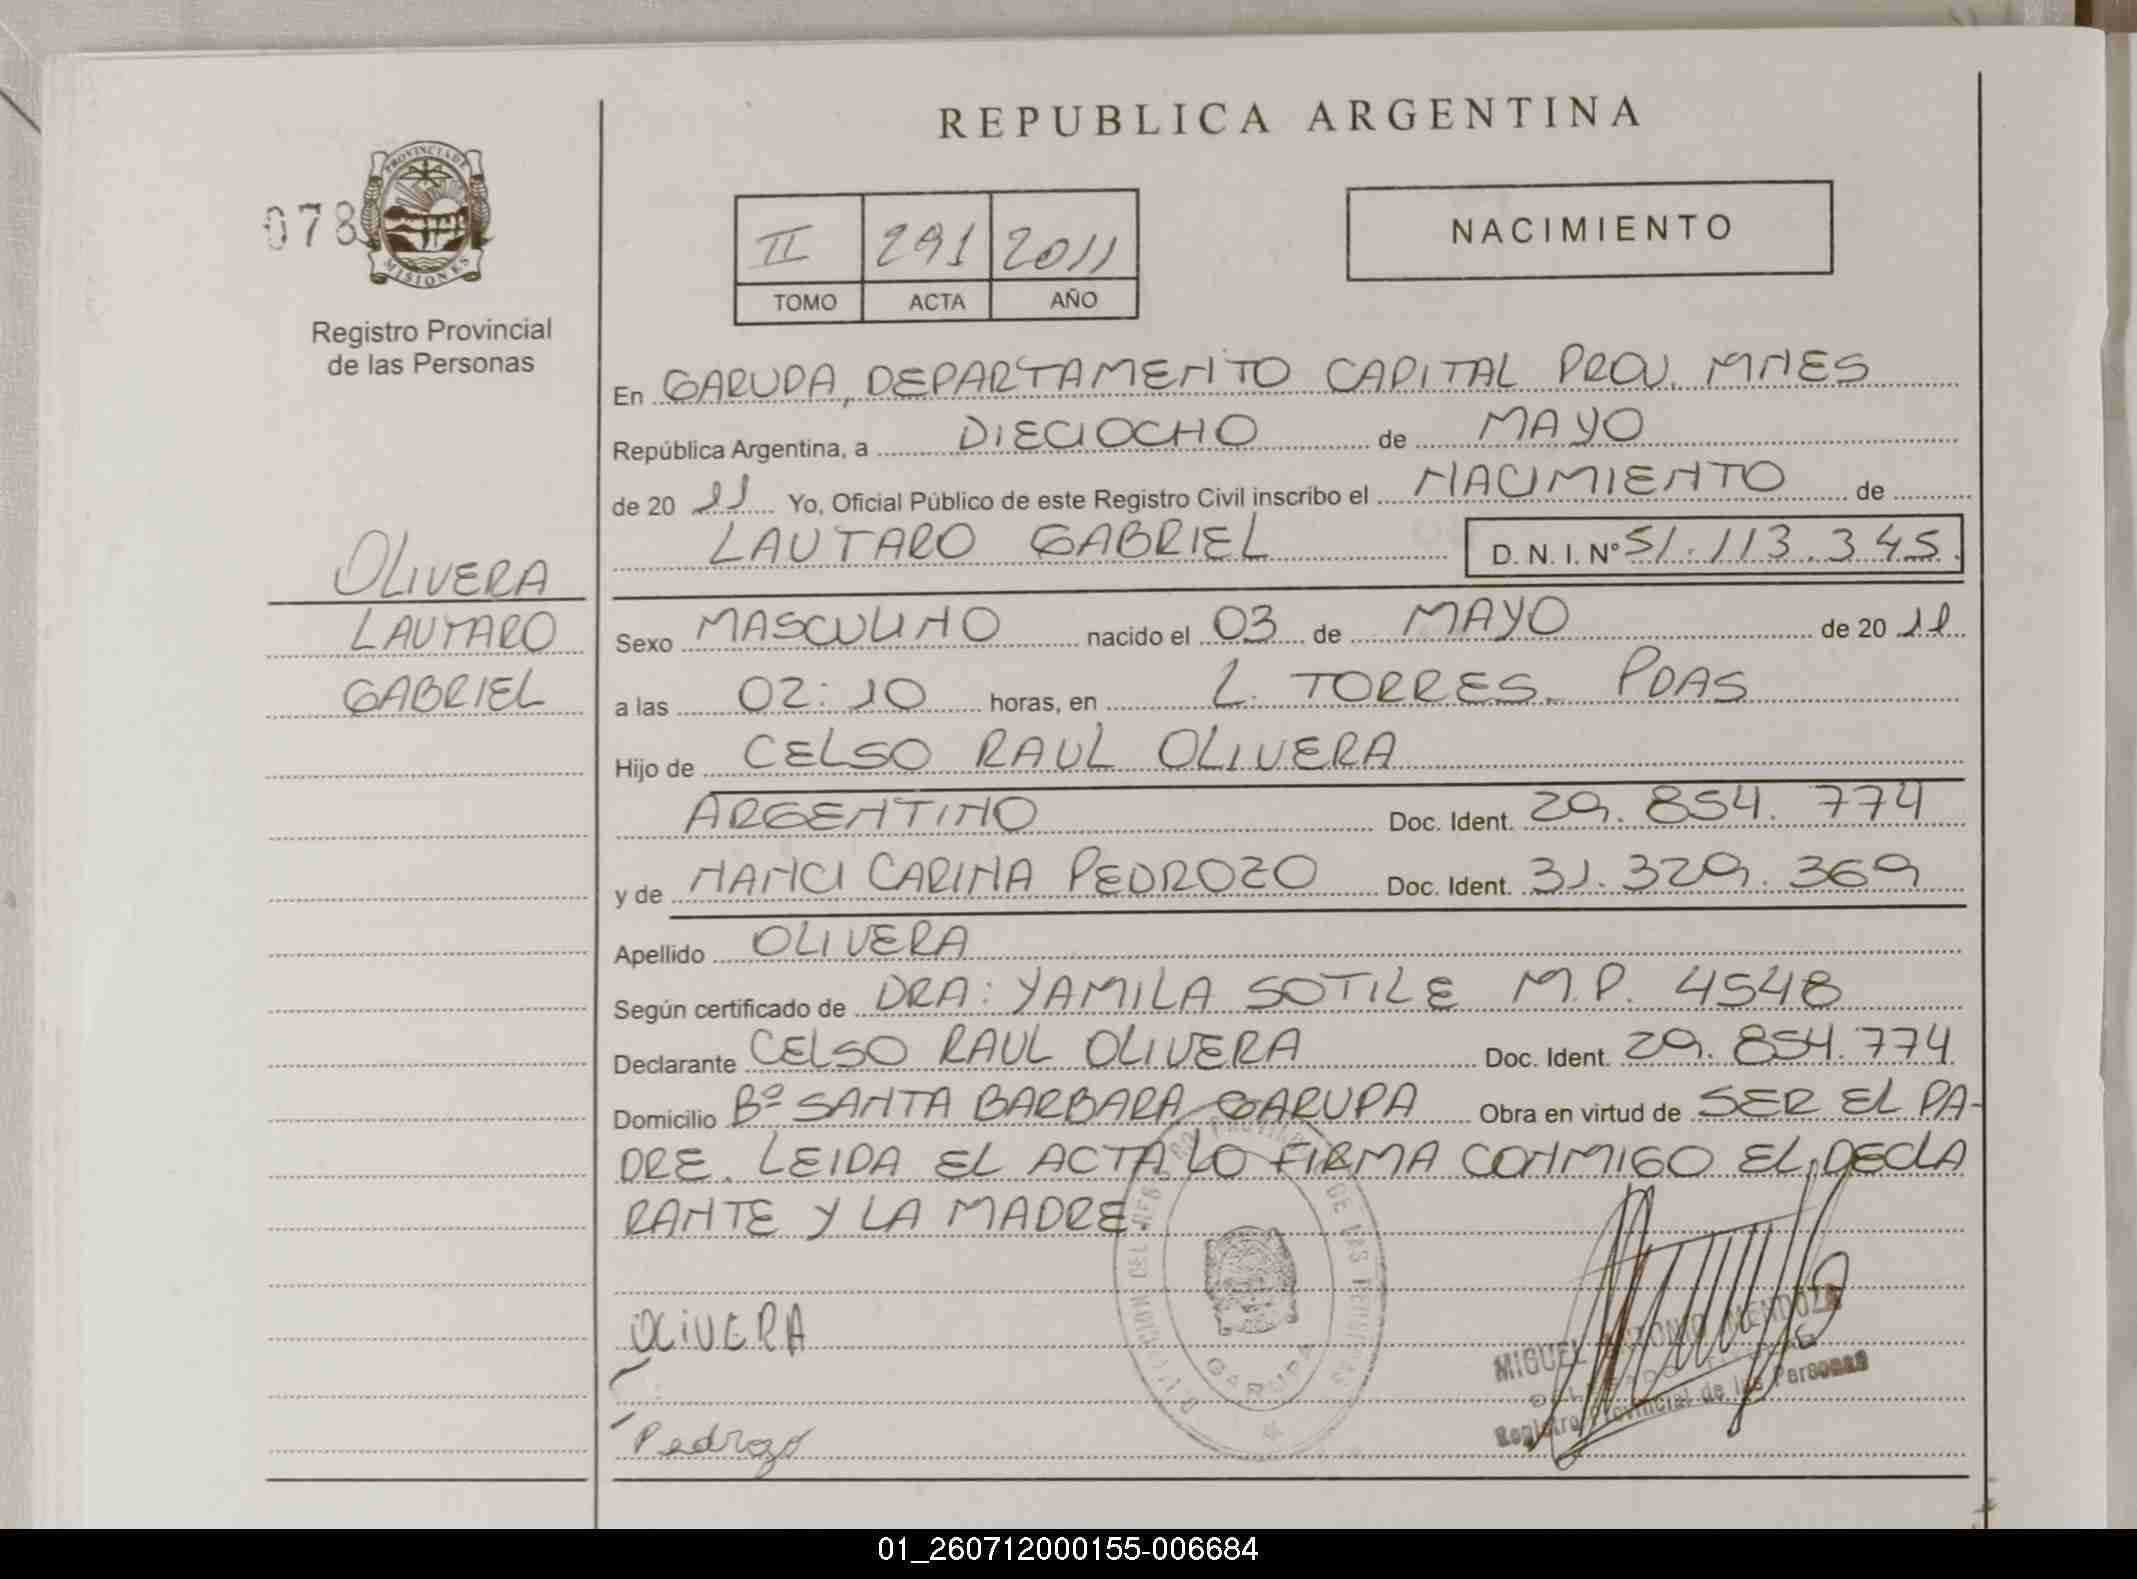 REPUBLICA ARGENTINA
078
PROVINCIA DE
MISIONES
Registro Provincial
de las Personas
II 291 2011
TOMO ACTA AÑO
NACIMIENTO
En GARUPA, DEPARTAMENTO CAPITAL PROV. MNES
República Argentina, a DIECIOCHO de MAYO
de 20 11 Yo, Oficial Público de este Registro Civil inscribo el NACIMIENTO de
LAUTARO GABRIEL D. N. I. Nº 51.113.345.
OLIVERA
LAUTARO
GABRIEL
Sexo MASCULINO nacido el 03 de MAYO de 20 11
a las 02:10 horas, en L. TORRES. PDAS
Hijo de CELSO RAUL OLIVERA
ARGENTINO Doc. Ident. 29.854.774
y de NANCI CARINA PEDROZO Doc. Ident. 31.329.369
Apellido OLIVERA
Según certificado de DRA: YAMILA SOTILE M.P. 4548
Declarante CELSO RAUL OLIVERA Doc. Ident. 29.854.774
Domicilio Bº SANTA BARBARA GARUPA Obra en virtud de SER EL PA-
DRE. LEIDA EL ACTA LO FIRMA CONMIGO EL DECLA
RANTE Y LA MADRE.
OLIVERA
Pedrozo
DE LAS PERSONAS
GARUPA
MIGUEL ANTONIO MENDOZA
Registro Provincial de las Personas
01_260712000155-006684